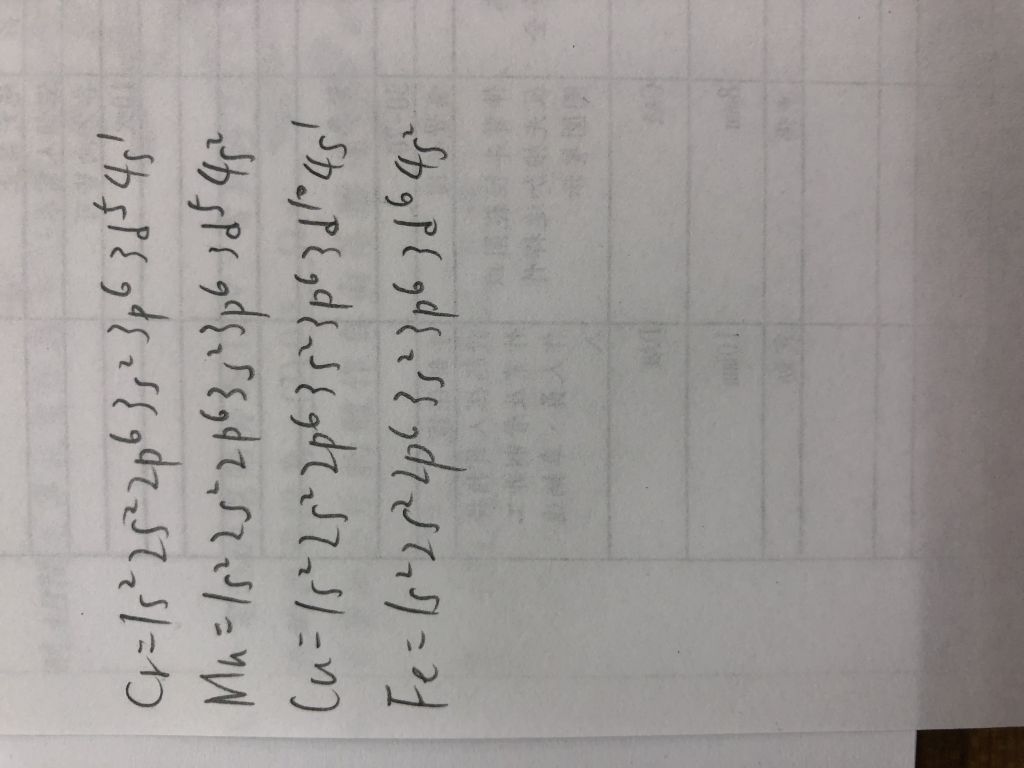 Cr=1s²2s²2p⁶3s²3p⁶3d⁵4s¹
Mn=1s²2s²2p⁶3s²3p⁶3d⁵4s²
Cu=1s²2s²2p⁶3s²3p⁶3d¹⁰4s¹
Fe=1s²2s²2p⁶3s²3p⁶3d⁶4s²